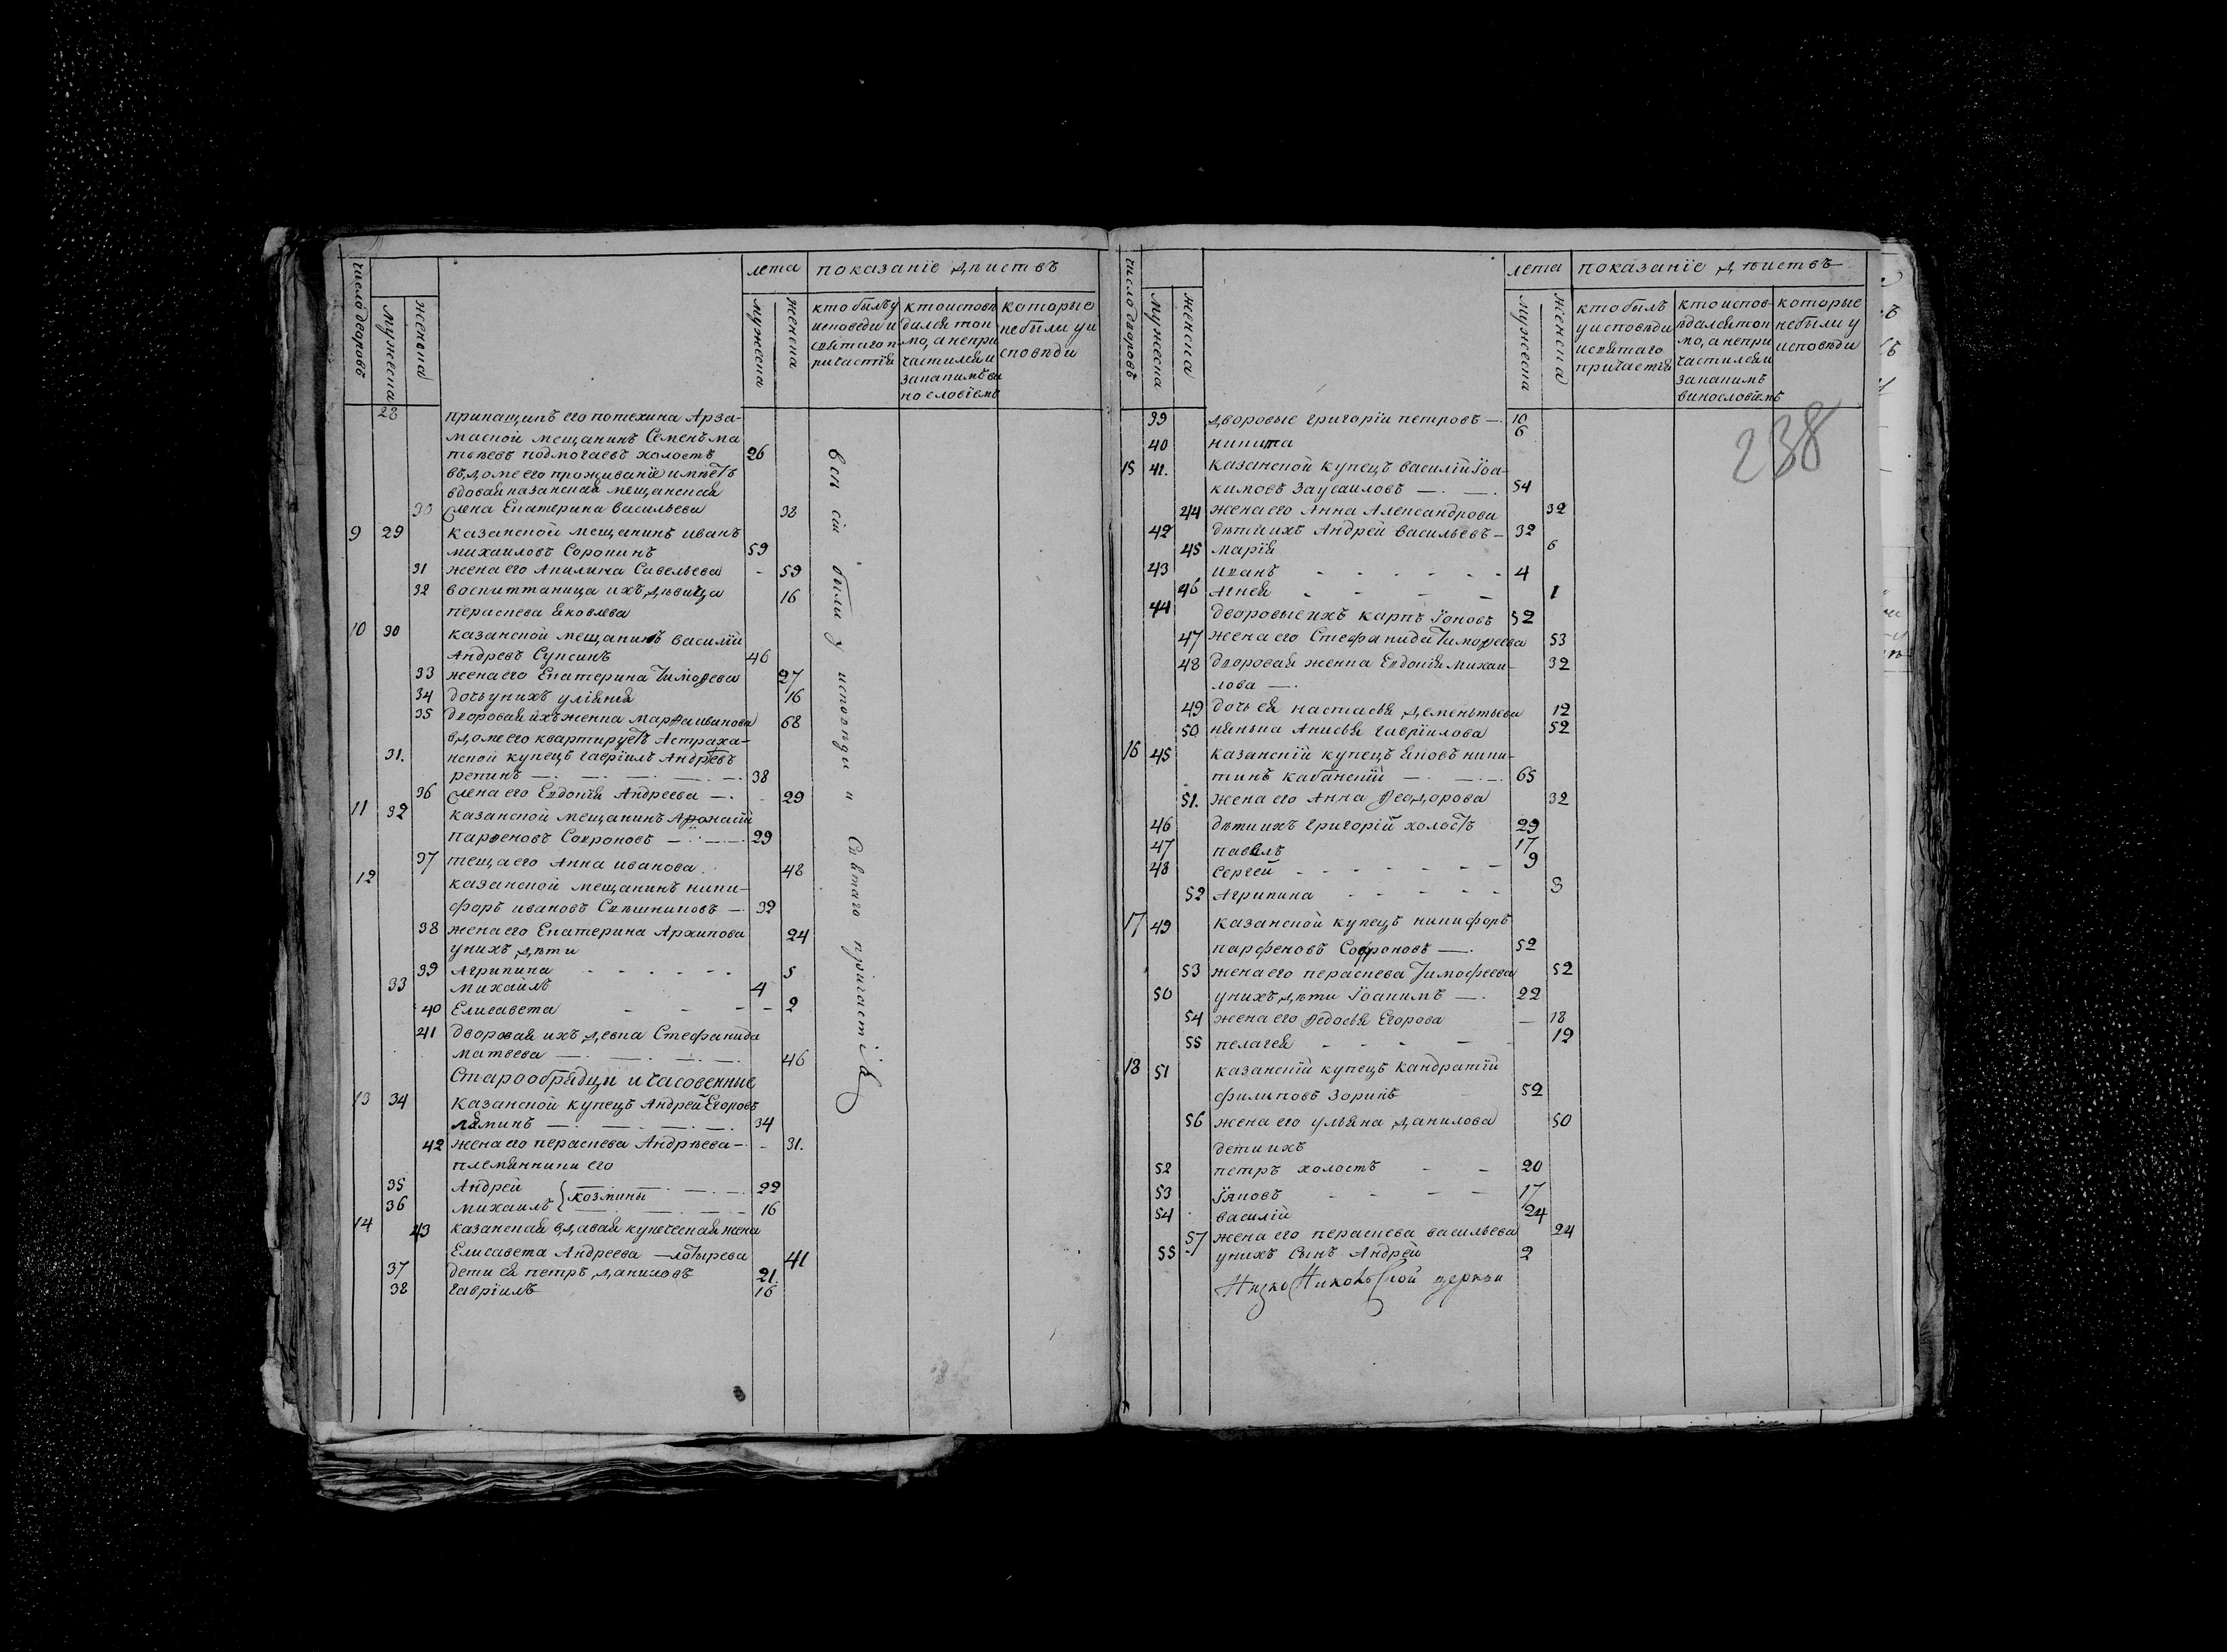 число дворовъ
мужеска
женска
лета
мужеска
женска
показанiе дѣиствъ
кто былъ у
исповеди и
святаго п-
ричастiя
кто исповѣ
дился ток
мо, а непри
частился и
закакимъ ви
но словiемъ
которые
небыли у и
споведи
28 прикащикъ его потехина Арза-
маской мещанинъ Семенъ ма
твѣевъ подмогаевъ холостъ 26
въ доме его проживанiе имѣетъ
вдовая казанская мещанская
30 жена Екатерина васильева 38
9 29 казанской мещанинъ иванъ
михаиловъ Сорокинъ 59
31 жена его Акилина Савельева - 59
32 воспиттаница ихъ девица 16
параскева Яковлева
10 30 казанской мещанинъ василiй
Андревъ Сунсинъ 46
33 жена его Екатерина Тимоѳева 27
34 дочь унихъ улiянiя 16
35 дворовая ихъ женка Марѳа ивинова 68
в доме его квартируетъ Астраха-
31. нской купецъ гаврiилъ Андрѣевъ
репинъ — . — . — . — . 38
36 жена его Евдокiя Андреева — . 29
11 32 казанской мещанинъ Аѳонасiй
парѳеновъ Соѳроновъ — . — . 29
37 теща его Анна иванова 48
12 казанской мещанинъ ники-
форъ ивановъ Свѣшниковъ — 32
38 жена его Екатерина Архипова 24
унихъ дѣти
39 Агрипина - - - - - - 5
33 михаилъ 4
40 Елисавета - - - - 2
41 дворовая ихъ девка Стефанида
матвеева — . — . — . — 46
Старообрядцы и часовенные
13 34 казанской купецъ Андрей Егоровъ
лямин — . — . — . — . 34
42 жена его параскева Андрѣева — - 31.
племянники его
35 Андрей } козмины — . — . 22
36 михаилъ — . — . 16
14 43 казанская вдавая купеческая жена
Елисавета Андреева —лотырева 41
37 дети ея петръ даниловъ 21.
38 гаврiилъ 16
вси сiи были у исповѣди и Святаго прiчастiя
число дворовъ
мужеска
женска
лета
мужеска
женска
показанiе дѣиствъ
кто былъ
у исповѣди
исвятаго
причастiя
кто испов-
ѣдался ток
мо, а непри
частился и
закакимъ
винословiемъ
которые
небыли у
исповѣди
238
39 дворовые григорiи петровъ — . 10
40 никита 6
15 41. казанской купецъ василiй Iоа-
кимовъ Заусаиловъ — . — . 54
44 жена его Анна Александрова 32
42 дѣтиихъ Андрей васильевъ — 32
45 марiя 6
43 иванъ - - - - - - 4
46 Агнея - - - - 1
44 дворовые ихъ карпъ Iоновъ 52
47 жена его Стефанида Тимоѳеева 53
48 дворовая женка Евдокiя михаи- 32
лова — .
49 дочь ея настасья дементьева 12
50 нянька Анисья гаврiилова 52
16 45 казанскiй купецъ Яковъ ники-
тинъ кабанскiй — . — . — 65
51. жена его Анна Ѳеодорова 32
46 дѣтиихъ григорiй холостъ 29
47 павелъ 17
48 Сергей - - - - - - 9
52 Агрипина - - - - - 3
17 49 казанской купецъ никифоръ
парфеновъ Софроновъ — . 52
53 жена его параскева Тимофеева 52
50 унихъ дѣти Iоакимъ — . 22
54 жена его Ѳедосья Егорова — 18
55 пелагея - - - - - 12
18 51 казанскiй купецъ Кандратiй
филиповъ Зоринъ 52
56 жена его ульяна данилова 50
дети ихъ
52 петръ холостъ - - 20
53 Iяковъ - - - - 17
54 василiй 24
57 жена его параскева васильева 24
55 унихъ сынъ Андрей 2
Низко Никольской церкви